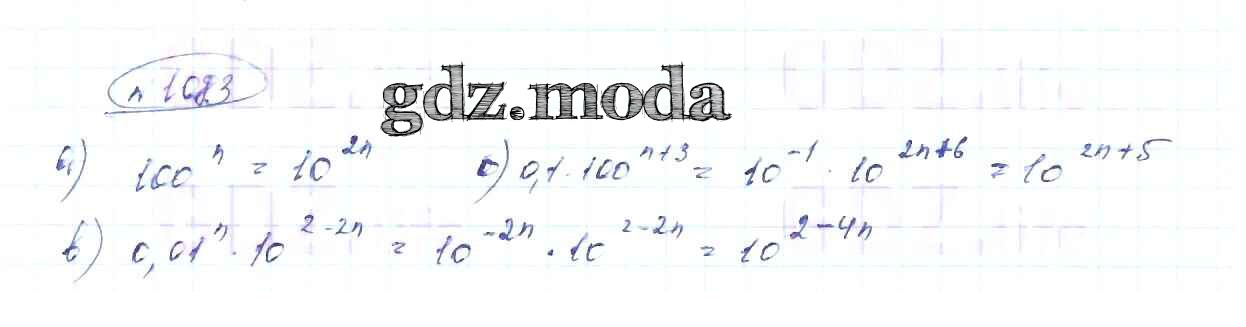 n 1083
gdz.moda
а) 100^n = 10^{2n} с) 0,1·100^{n+3} = 10^{-1}·10^{2n+6} = 10^{2n+5}
в) 0,01^n·10^{2-2n} = 10^{-2n}·10^{2-2n} = 10^{2-4n}